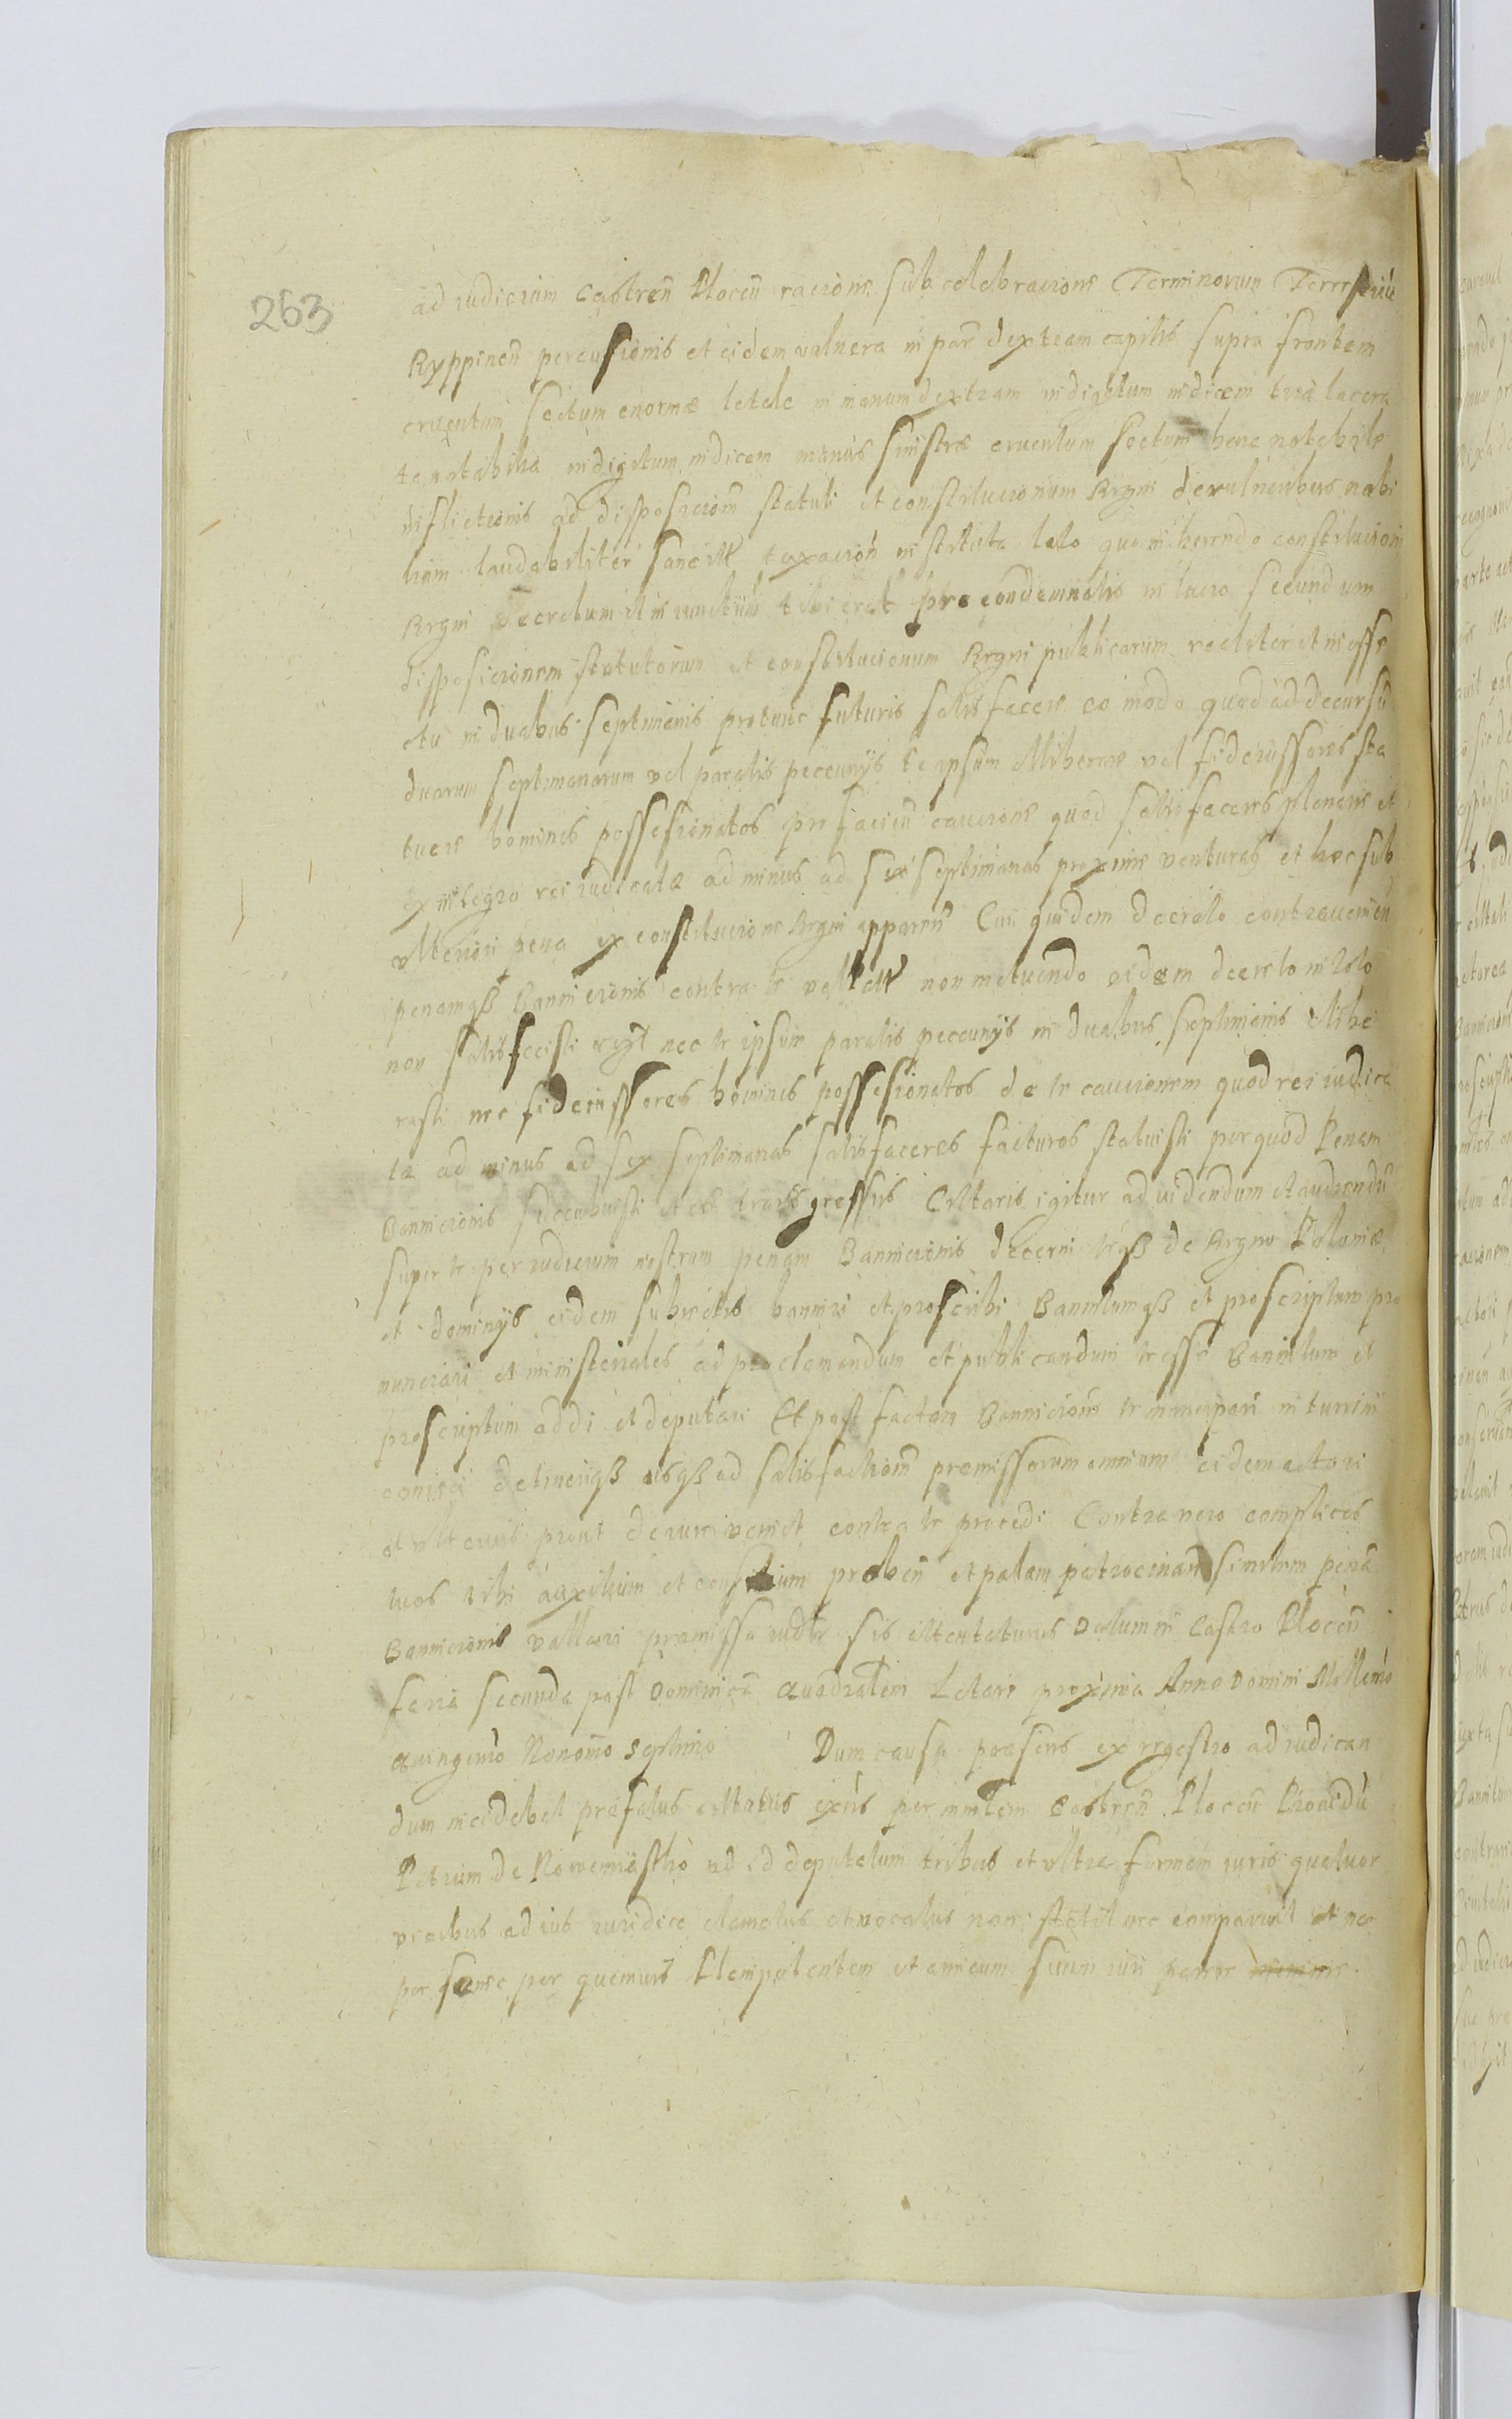 263
ad iudicium Castren Plocen racione sub celebracione Terminorum Terrestriu
Ryppinen percussionis et eidem vulnera in par dextram capitis supra frontem
cruentum sectum enorme letale in manum dextram in digitum indicem tria lacera
ta notabilia in digitum indicem manus sinistræ cruentum sectum bene notabile
inflictionis ad disposicionem statuti et constitucionum Regni de vulneribus nobi
lium laudabiliter sancitæ taxacion instituta lato quo inherendo constitucioni
Regni decretum et iniunctum tibi erat pro condemnatis in lucro secundum
disposicionem statutorum et constitucionum Regni publicarum realiter et in effe
ctu in duabus septimanis protunc futuris satisfacere eo modo quod ad decursu
duarum septimanarum vel paratis peccunijs te ipsum eliberare vel fideiussores sta
tuere homines possesionatos pro faciend caucione quod satisfaceres plenarie et
ex integro rei iudicatæ ad minus ad sex septimanas proxime venturas et hoc sub
ulteriori pena ex constitucione Regni apparen Cui quidem decreto contraveniendo
penamq Bannicionis contra te vallatæ non metuendo eidem decreto in toto
non satisfecisti nec te ipsum paratis peccunijs in duabus septimanis elibe
rasti nec fideiussores homines possesionatos de te caucionem quod rei iudica
tæ ad minus ad sex septimanas satisfaceres facturos statuisti per quod Penam
Bannicionis succubuisti et es transgressus Citaris igitur ad videndum et audiendu
super te per iudicium nostrum penam Bannicionis decerni teq de Regno Poloniæ
et dominijs eidem subiectis banniri et proscribi Bannitumq et proscriptum pro
nunciari et ministeriales ad proclamandum et publicandum te esse Bannitum et
proscriptum addi et deputari Et post factam Bannicione te mancipari in turrim
conijci detineriq usq ad satisfactione premissorum omnium eidem actori
et ulterius prout de iure venit contra te procedi Contra vero complices
tuos tibi auxilium et consilium preben et palam patrocinan similem penam
Bannicionis vallari premissa iudt sis attentaturus Datum in Castro Plocen
feria secunda post Dominica Quadralem Letare proxima Anno Domini Millemo
Quingento Nonomo septimo Dum causa præsens ex regestro ad iudican
dum incidebat præfatus citatus exus per mintem Castren Plocen Providu
Petrum de Nowemiastho ad id deputatum tribus et ultra formam iuris quatuor
vicibus ad ius iuridice clamatus et vocatus non stetit nec comparuit et nec
per se nec per quemvis Plenipotentem et amicum suum iuri parere